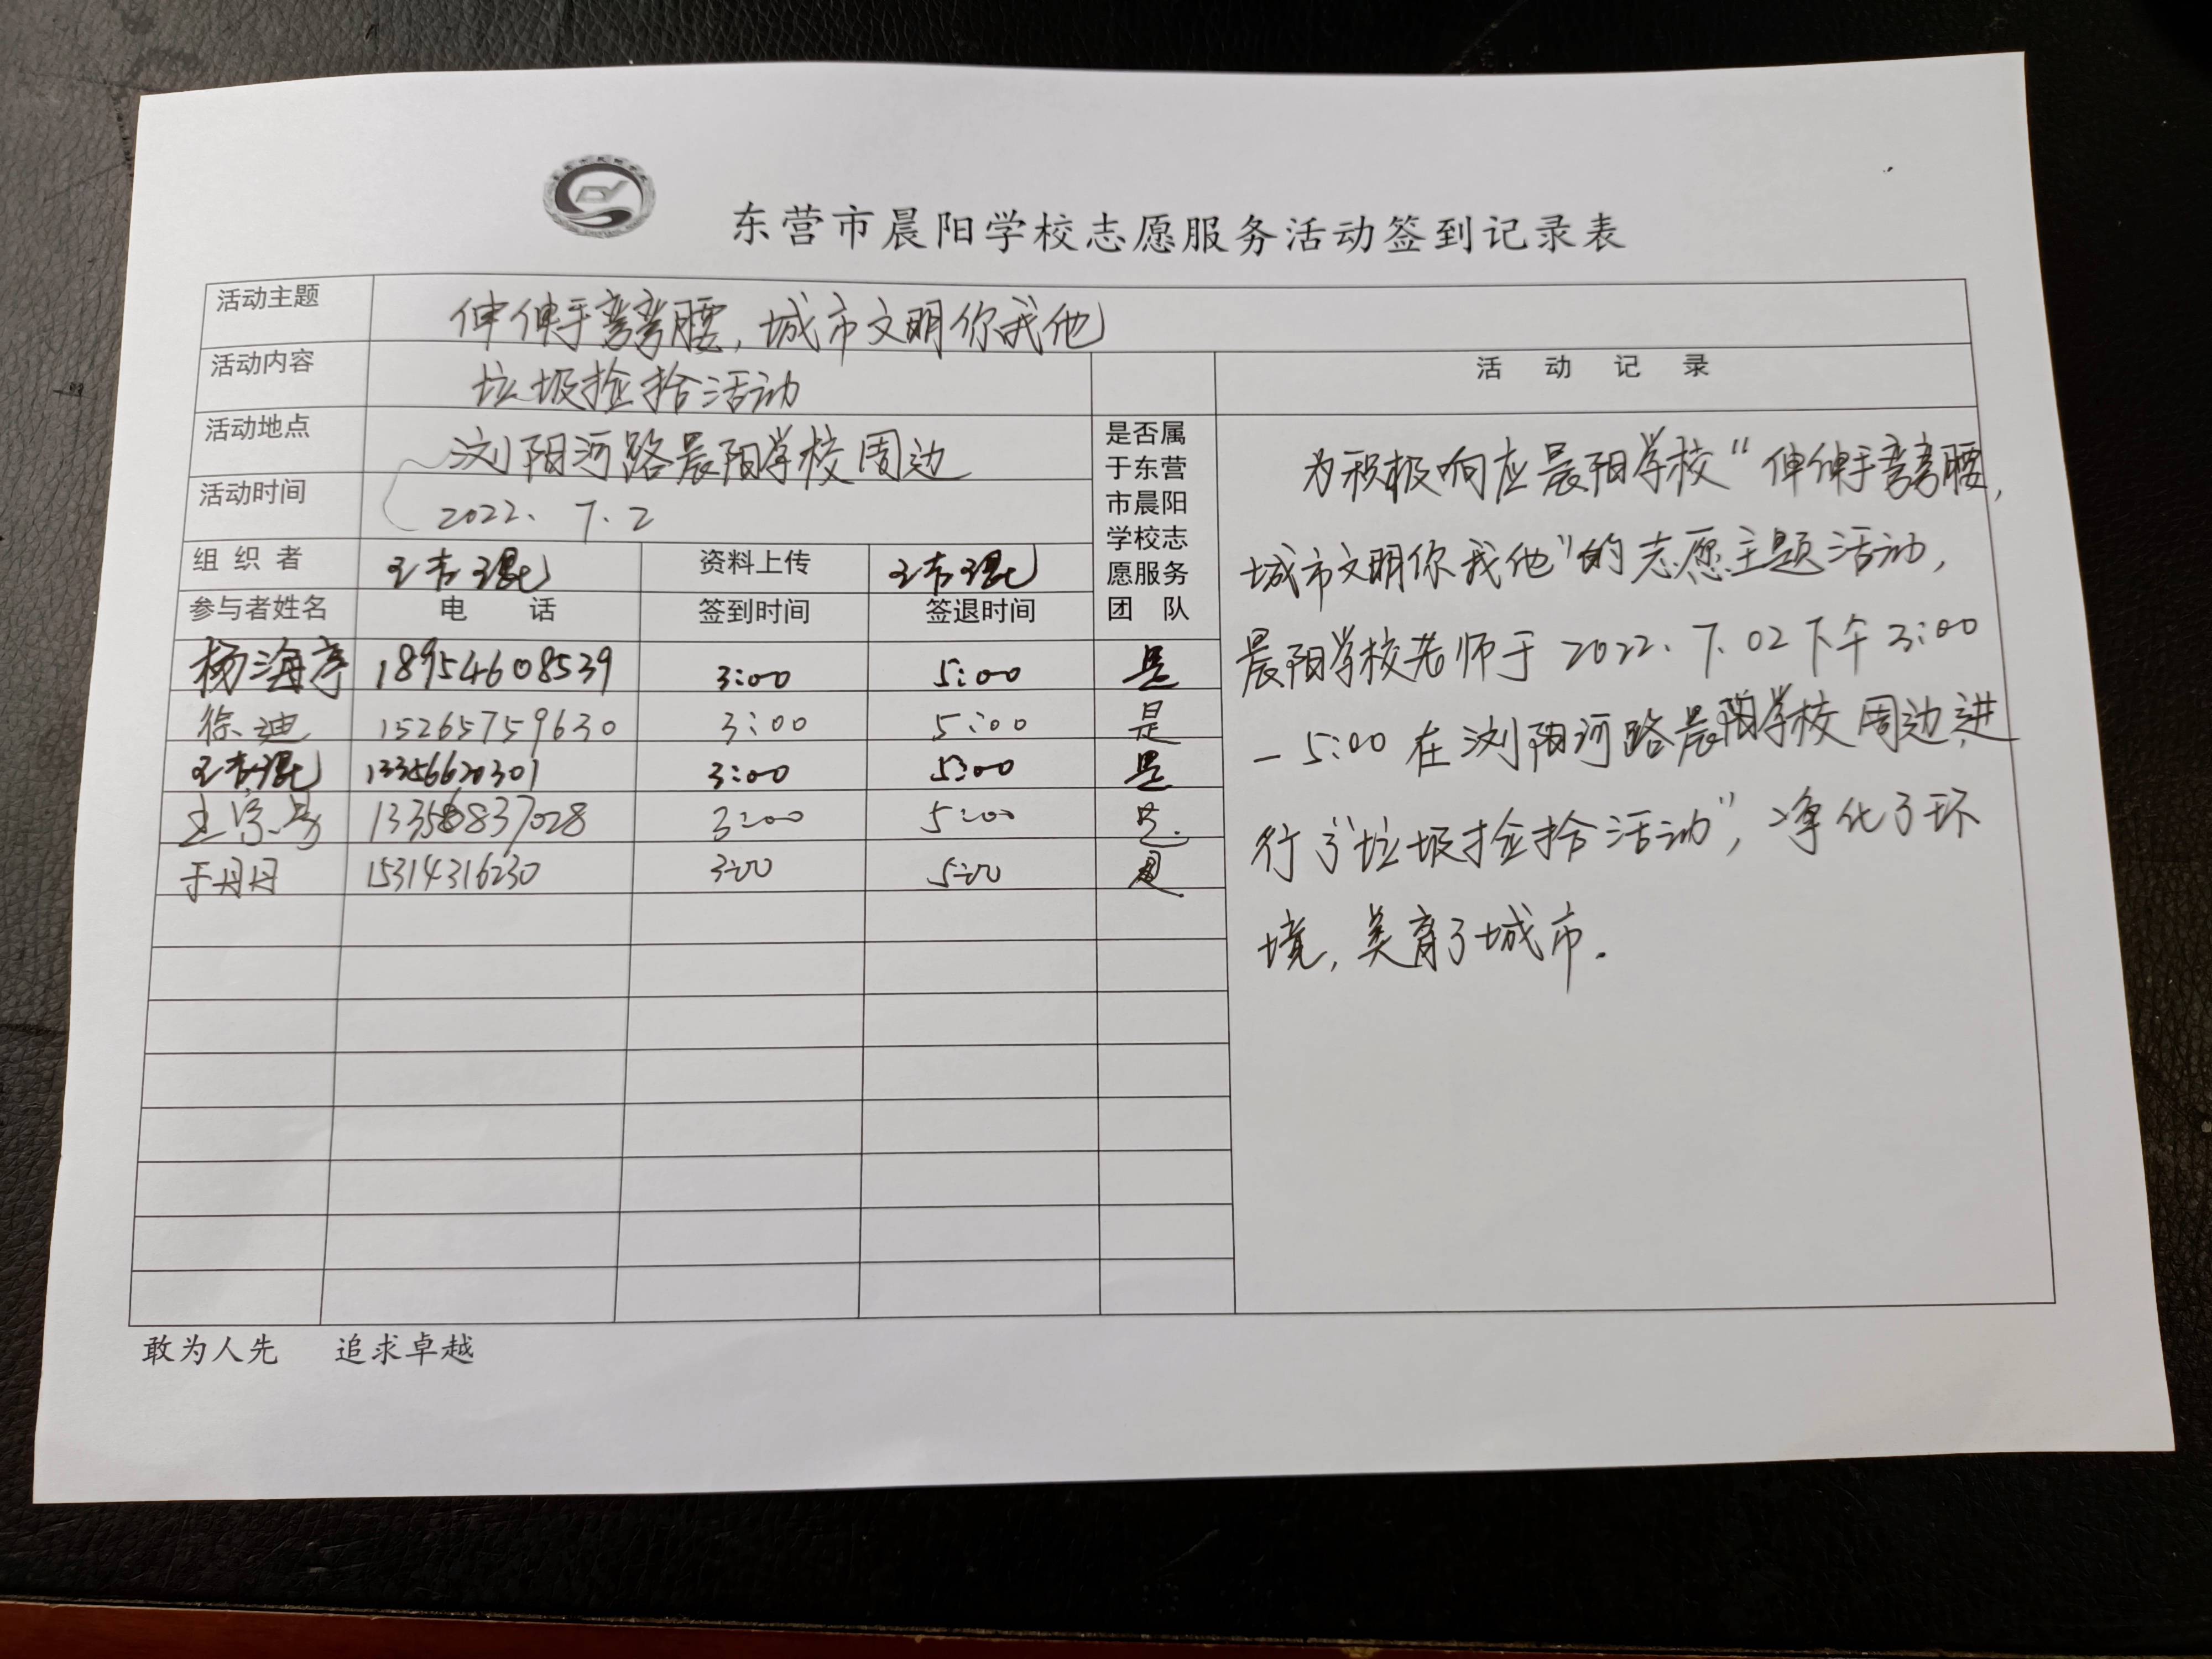 东营市晨阳学校志愿服务活动签到记录表
活动主题 伸伸手弯弯腰，城市文明你我他
活动内容 垃圾捡拾活动
活动地点 浏阳河路晨阳学校周边
活动时间 2022.7.2
组织者 资料上传
参与者姓名 电话 签到时间 签退时间
是否属
于东营
市晨阳
学校志
愿服务
团队
杨海亭 18954608539 3:00 5:00 是
徐迪 15265759630 3:00 5:00 是
13356620301 3:00 5:00 是
3:00 5:00 是
于丹丹 15314316230 3:00 5:00 是
活动记录
为积极响应晨阳学校“伸伸手弯弯腰，
城市文明你我他”的志愿主题活动，
晨阳学校老师于2022.7.02下午3:00
-5:00在浏阳河路晨阳学校周边进
行了“垃圾捡拾活动”，净化了环
境，美育了城市.
敢为人先 追求卓越